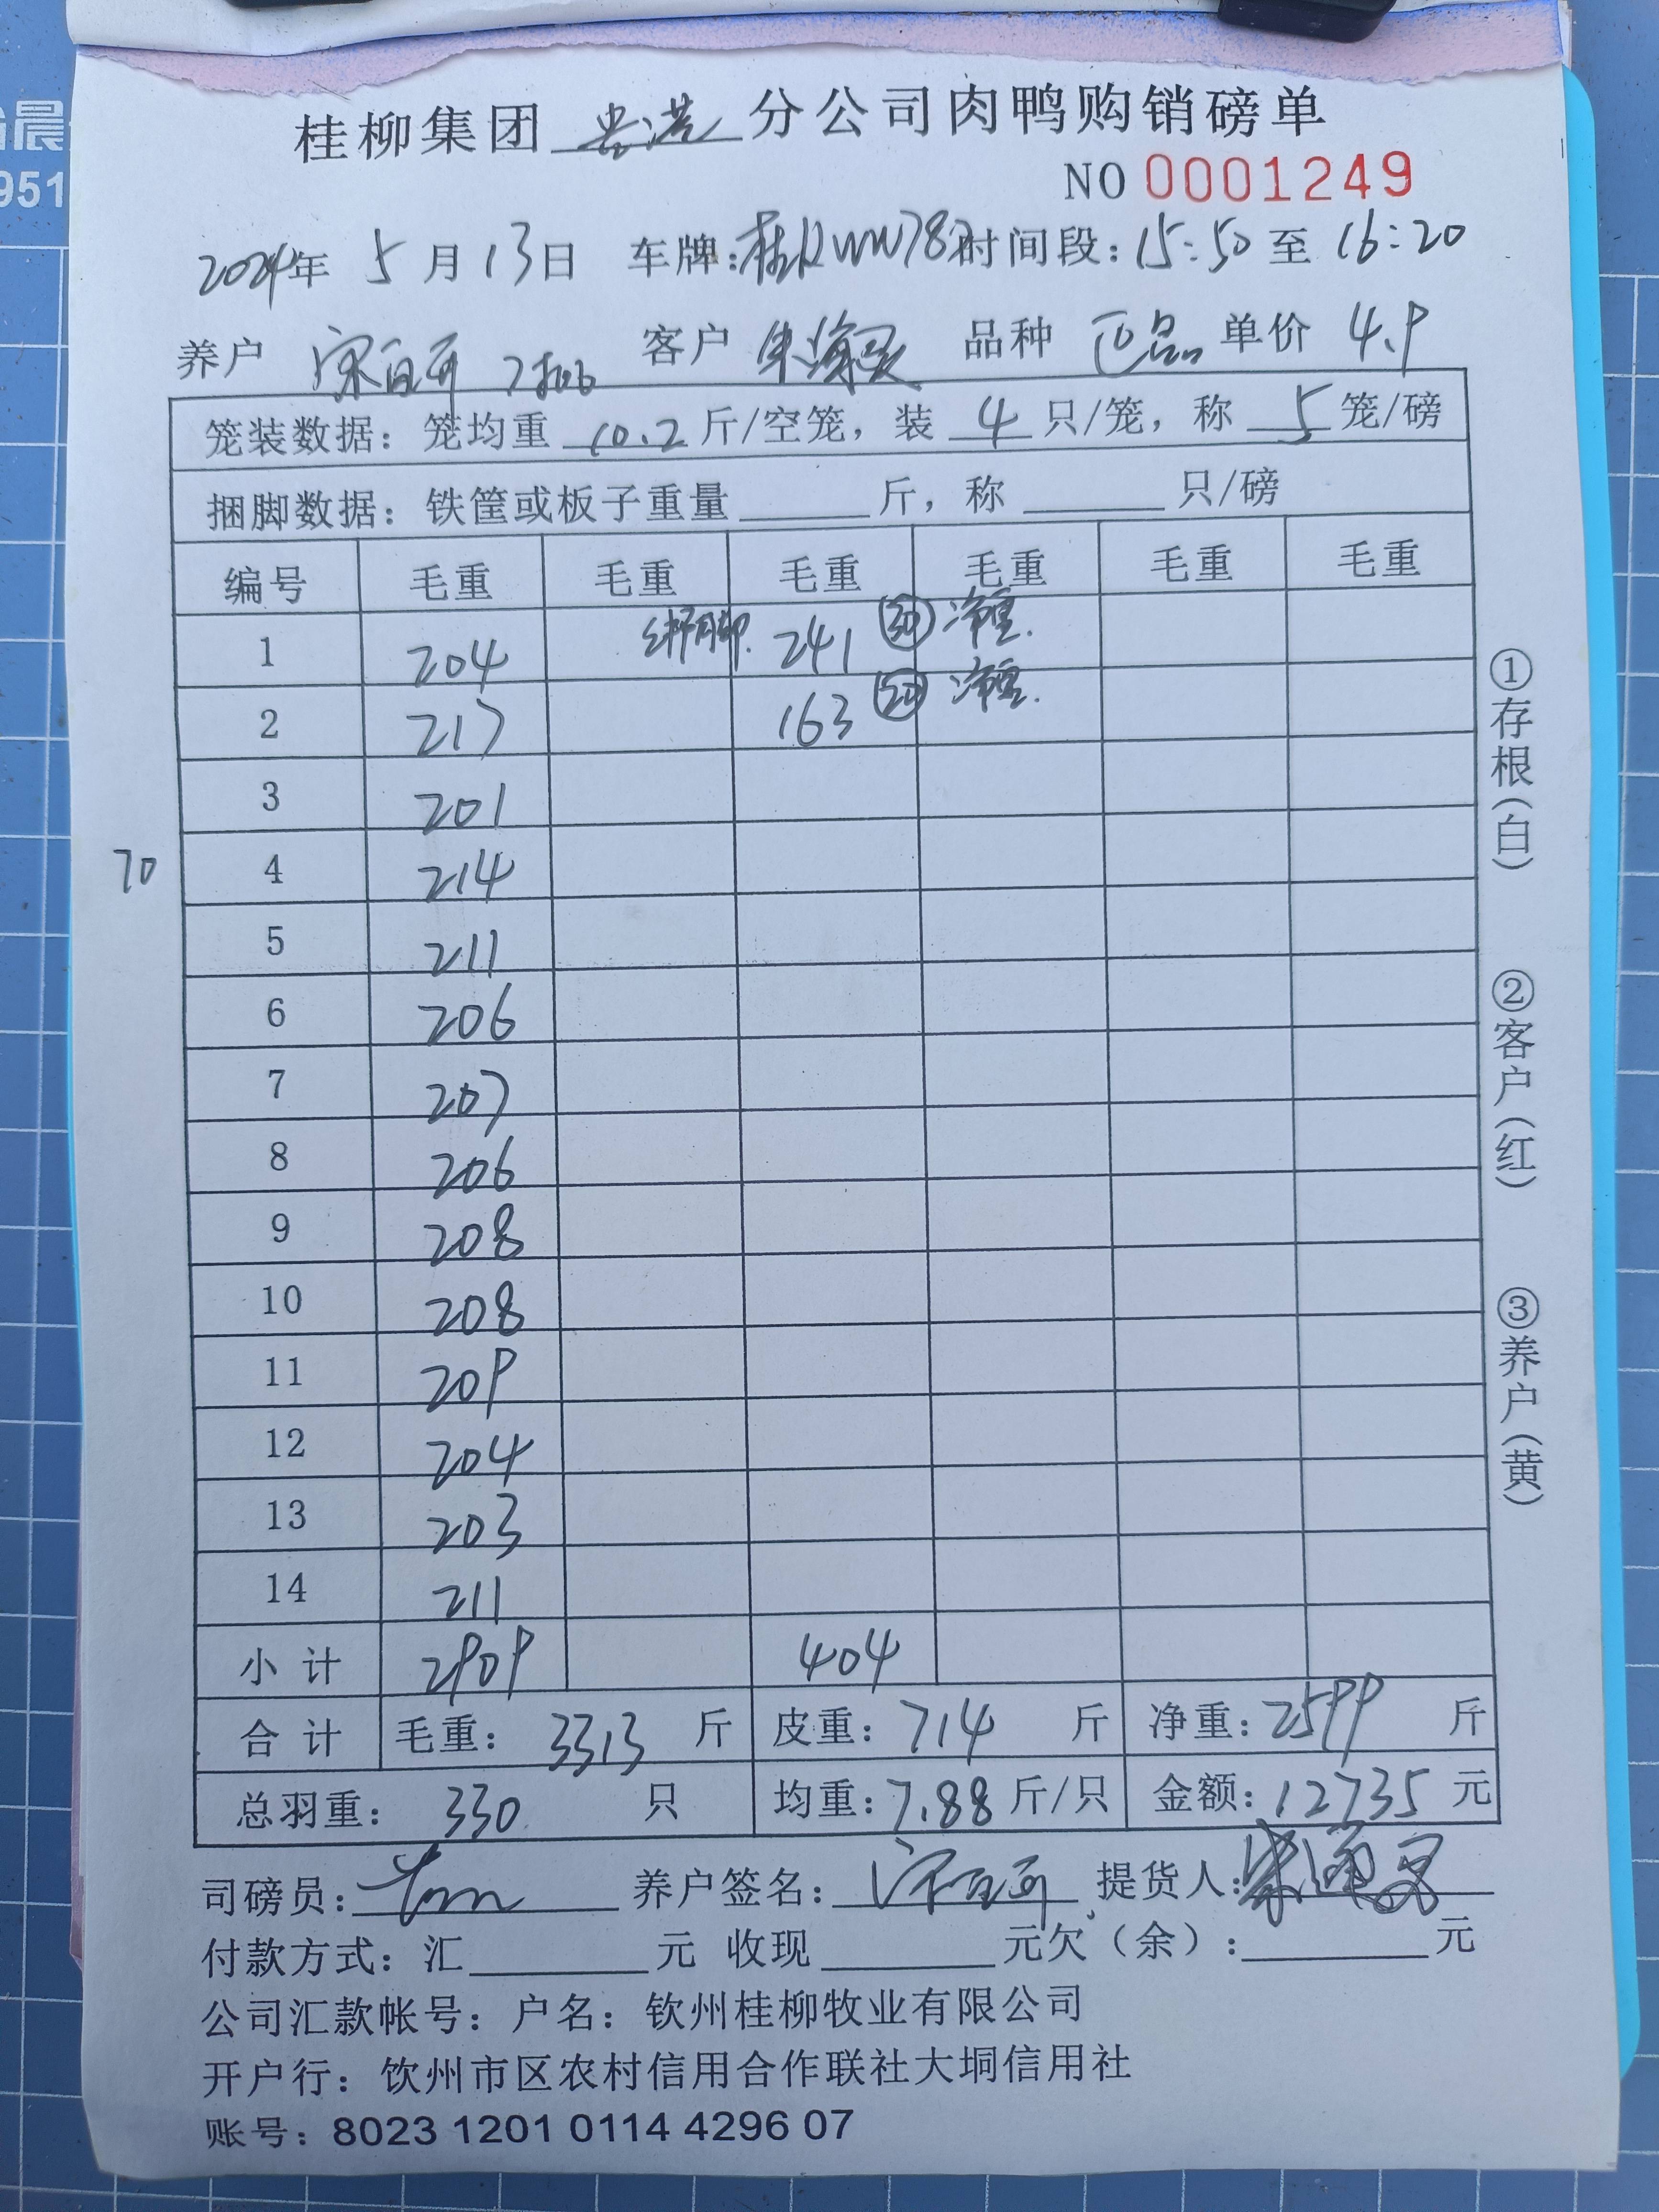 晨
951
桂柳集团 贵港 分公司肉鸭购销磅单
NO 0001249
2024年 5月 13日 车牌:桂KWW787 时间段:15:50 至 16:20
养户 宋百所 2批 客户 朱海灵 品种 正品 单价 4.9
笼装数据: 笼均重 10.2 斤/空笼, 装 4 只/笼, 称 5 笼/磅
捆脚数据: 铁筐或板子重量 斤, 称 只/磅
编号 毛重 毛重 毛重 毛重 毛重 毛重
1 204 绑脚. 241 30 净重.
2 217 163 20 净重.
3 201
70 4 214
5 211
6 206
7 207
8 206
9 208
10 208
11 209
12 204
13 203
14 211
小计 2909 404
合计 毛重: 3313 斤 皮重: 714 斤 净重: 2599 斤
总羽重: 330 只 均重: 7.88 斤/只 金额: 12735 元
司磅员: 养户签名: 提货人:
付款方式: 汇 元 收现 元欠(余): 元
公司汇款帐号: 户名: 钦州桂柳牧业有限公司
开户行: 钦州市区农村信用合作联社大垌信用社
账号: 8023 1201 0114 4296 07
①存根(白)
②客户(红)
③养户(黄)